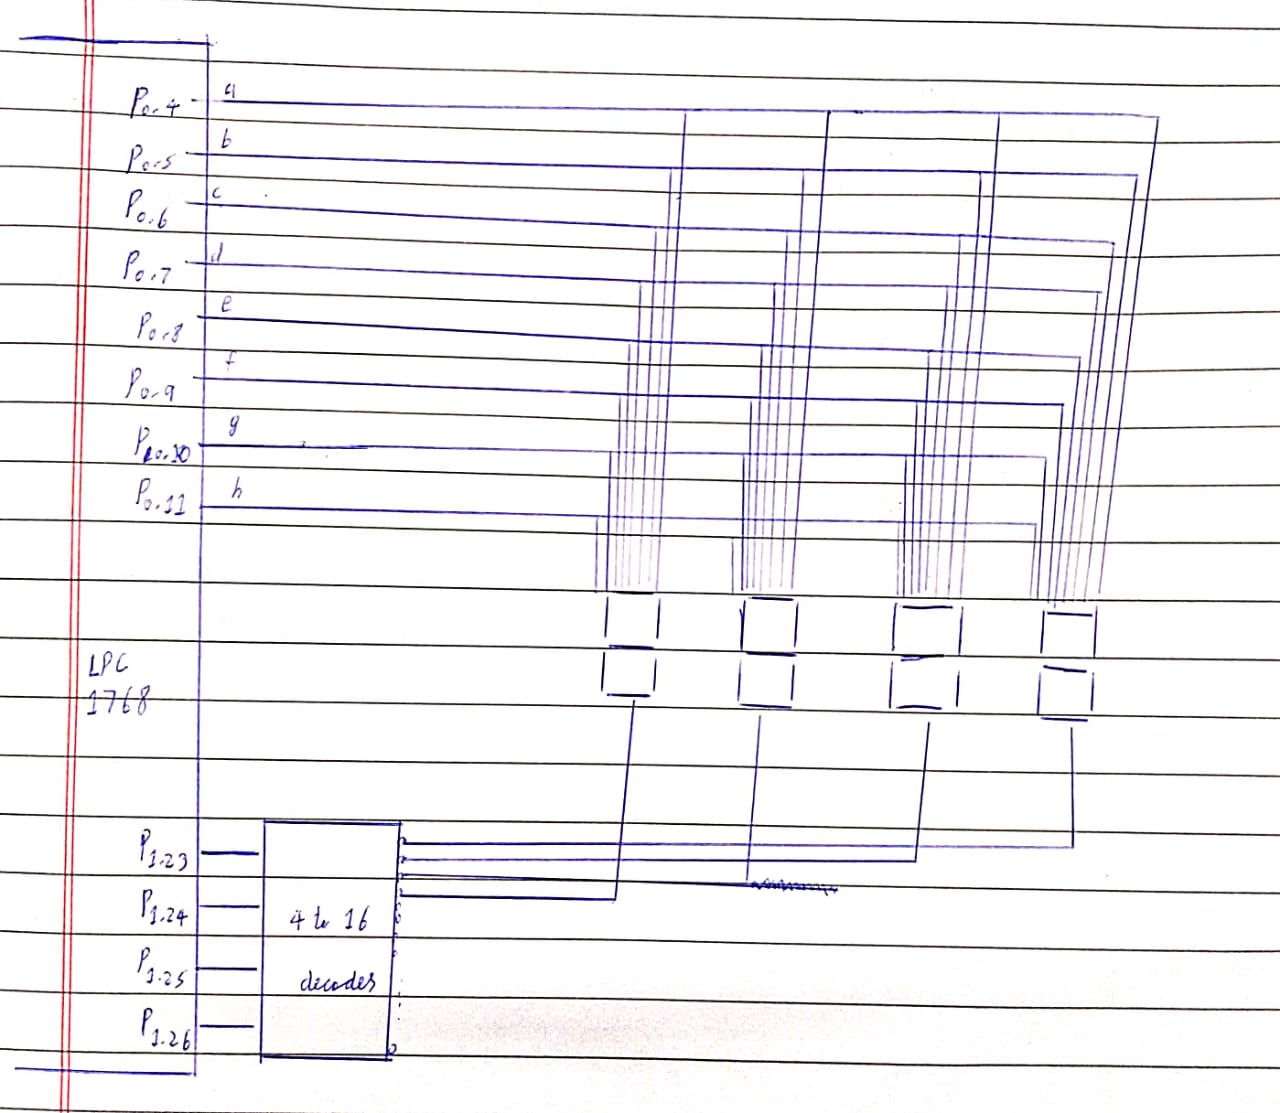 P0.4 a
P0.5 b
P0.6 c
P0.7 d
P0.8 e
P0.9 f
P0.10 g
P0.11 h
LPC
1768
P1.23
P1.24
P1.25
P1.26
4 to 16
decodes